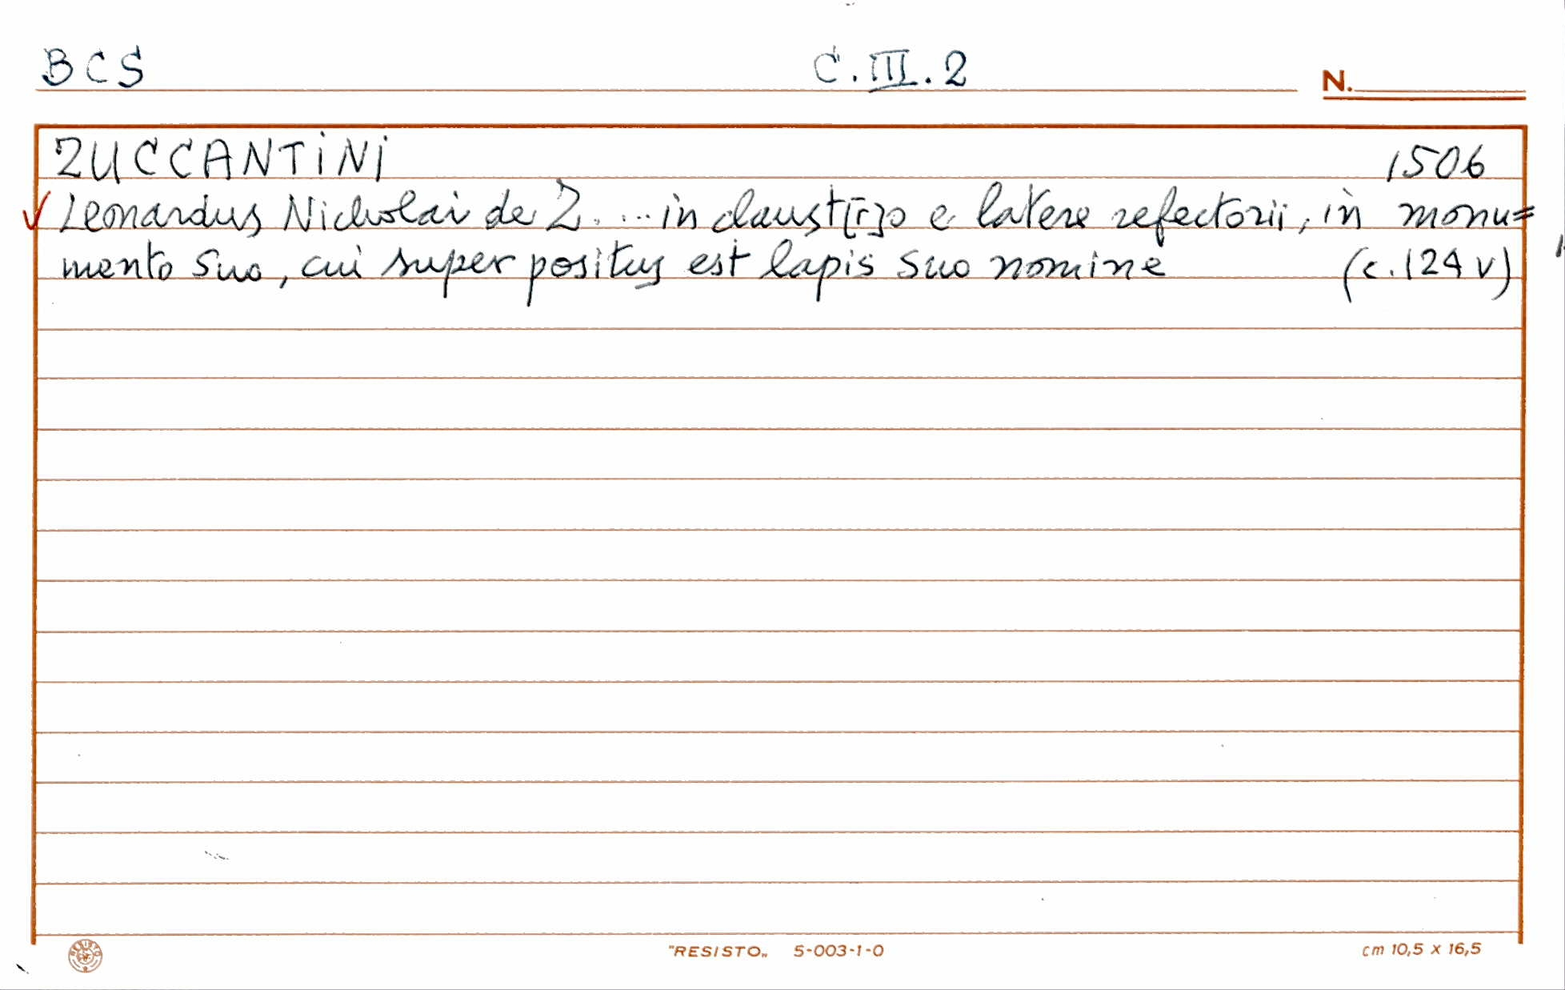 BCS C.III.2 N.
ZUCCANTINI 1506
√ Leonardus Nicholai de Z. ... in claust[r]o e latere refectorii, in monu=
mento suo, cui super positus est lapis suo nomine (c.124v)
RESISTO
"RESISTO„ 5-003-1-0 cm 10,5 x 16,5